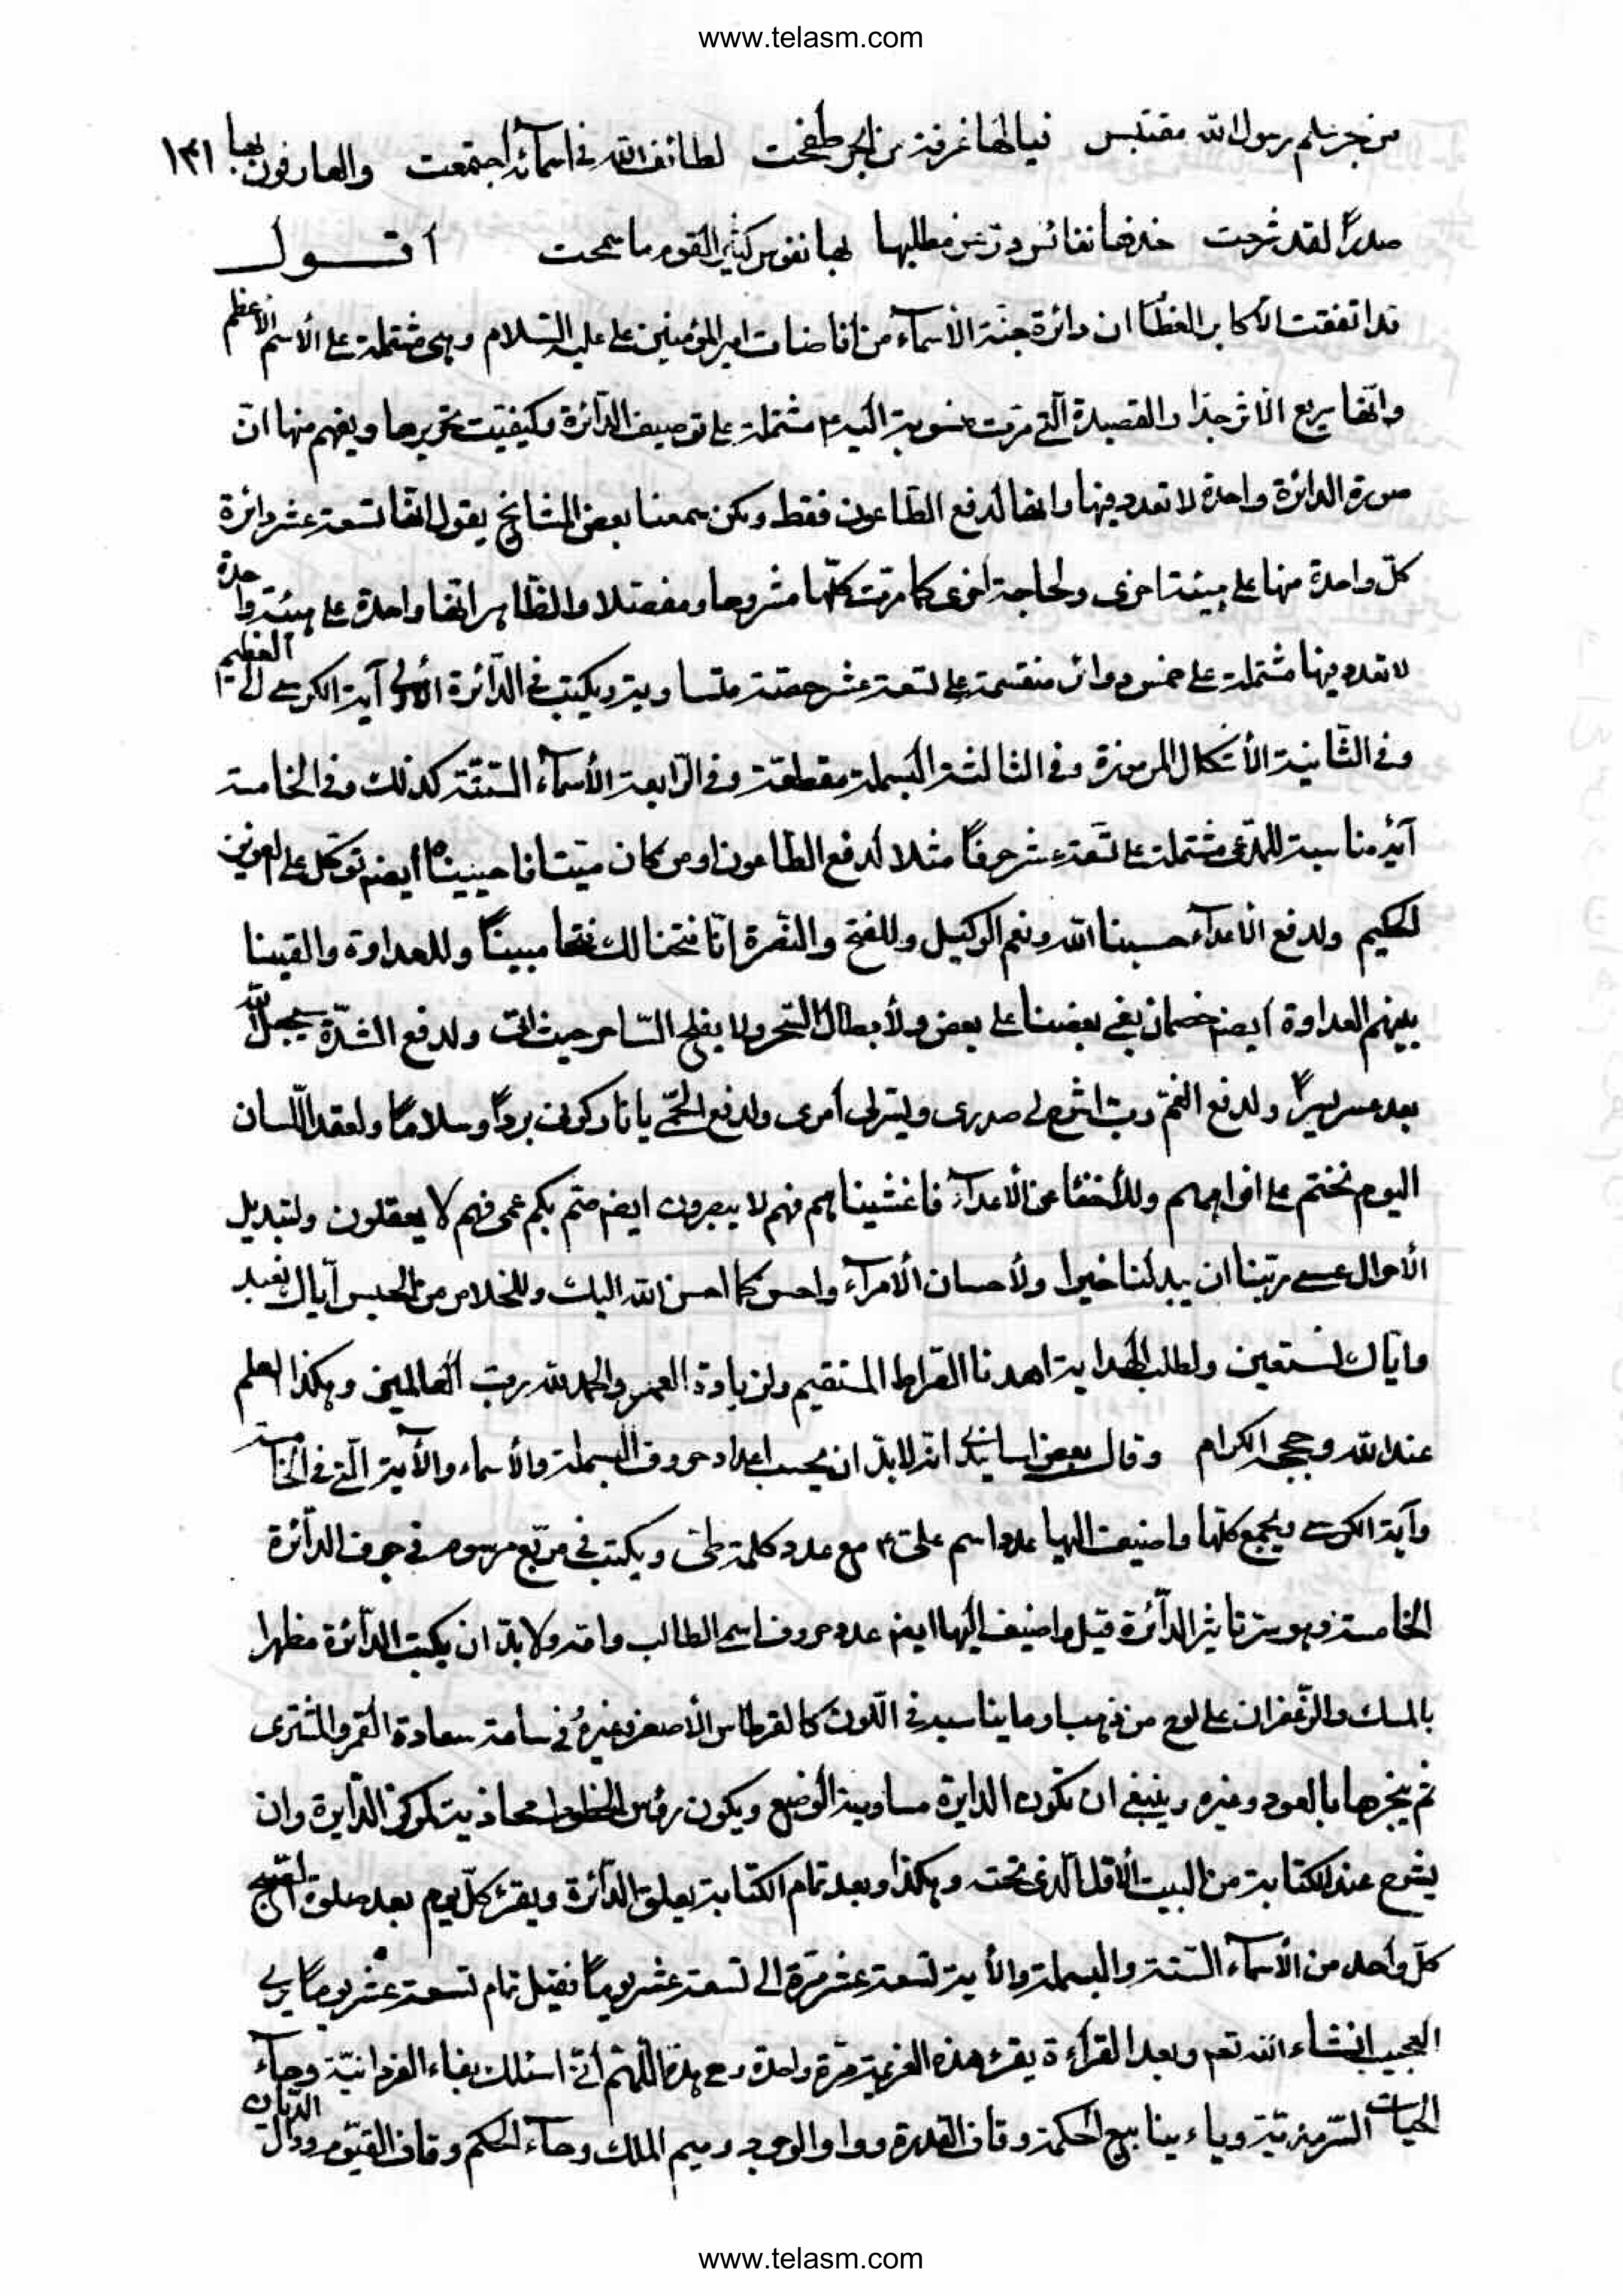 www.telasm.com
من بحر علم رسول الله مقتبس فيالها غرفة من البحر طفحت لطائف الله في اسمائه اجتمعت والعارفون بها ١٣١
صدراً لقد شرحت خذها نفائس در عز مطلبها بها نفوس كثير القوم ما سمحت اقول
قد اتفقت الأكابر العظما ان دائرة جنة الأسماء من افاضات امير المؤمنين علي عليه السلام وهي مشتملة على الأسم الأعظم
وانها سريع الاثر جدا والقصيدة التي مرت منسوبة اليه ٤ مشتملة على توصيف الدائرة وكيفيت تحريرها ويفهم منها ان
صورة الدائرة واحدة لا تعدد فيها وانها لدفع الطاعون فقط ولكن سمعنا بعض المشايخ يقول انها تسعة عشر دائرة
كل واحدة منها على هيئة اخرى ولحاجة اخرى كما مرت كلها مشروحا ومفصلا والظاهر انها واحدة على هيئة واحدة
لا تعدد فيها مشتملة على خمس دوائر منقسمة على تسعة عشر حصة متساوية ويكتب في الدائرة الأولى آية الكرسي الى العظيم
وفي الثانية الأشكال المرموزة وفي الثالثة البسملة مقطعة وفي الرابعة الأسماء الستة كذلك وفي الخامسة
آية مناسبة للمدعى مشتملة على تسعة عشر حرفاً مثلا لدفع الطاعون اومن كان ميتا فاحييناه ايضم توكل على العزيز
الحكيم ولدفع الأعداء حسبنا الله ونعم الوكيل وللفتح والنصرة إنا فتحنا لك فتحا مبيناً وللعداوة والقينا
بينهم العداوة ايضم خصمان بغى بعضنا على بعض ولأبطال السحر ولا يفلح الساحر حيث اتى ولدفع الشدة سيجعل الله
بعد عسر يسراً ولدفع الغم رب اشرح لي صدري ويسر لي أمري ولدفع الحمى يا نار كوني برداً وسلاماً ولعقد اللسان
اليوم نختم على افواههم وللأخفا عن الأعداء فاغشيناهم فهم لا يبصرون ايضم صم بكم عمي فهم لا يعقلون ولتبديل
الأحوال عسى ربنا ان يبدلنا خيرا ولأحسان الأمراء واحسن كما احسن الله اليك وللخلاص من الحبس آياك نعبد
واياك نستعين ولطلب الهداية اهدنا الصراط المستقيم ولزيادة العمر والحمد لله رب العالمين وهكذا العلم
عند الله وحججه الكرام وقال بعض اساتيدي انه لا بد ان يحسب اعداد حروف البسملة والأسماء والأية التي في الخامسة
وآية الكرسي ويجمع كلها واضيف اليها عدد اسم علي ٤ مع عدد كلمة ويكتب في مربع مرسوم في جوف الدائرة
الخامسة وهو سر تاثير الدائرة قيل واضيف اليها ايضم عدد حروف اسم الطالب وامه ولا بد ان يكتب الدائرة مطهرا
بالمسك والزعفران على لوح من ذهب او ما يناسبه في اللون كالقرطاس الأصفر وغيره في ساعة سعادة القمر والمشتري
ثم يبخرها بالعود وغيره وينبغي ان تكون الدايرة مساوية الوضع ويكون رؤس الخطوط محاذية لمركز الدايرة وان
يشرع عند الكتابة من البيت الأول الذي تحته وهكذا وبعد تمام الكتابة يعلق الدائرة ويقرء كل يوم بعد صلوة الصبح
كل واحد من الأسماء الستة والبسملة والأية تسعة عشر مرة الى تسعة عشر يوماً فقبل تمام تسعة عشر يوماً يرى
العجيب انشاء الله تعم وبعد القراءة يقرء هذه العزيمة مرة واحدة وهي هذه اللهم أني اسئلك بفاء الفردانية وحاء
الحيات السرمدية وياء ينابيع الحكمة وقاف القدرة وواو الوجود وميم الملك وحاء الحكم وقاف القيوم ودال الديان
www.telasm.com